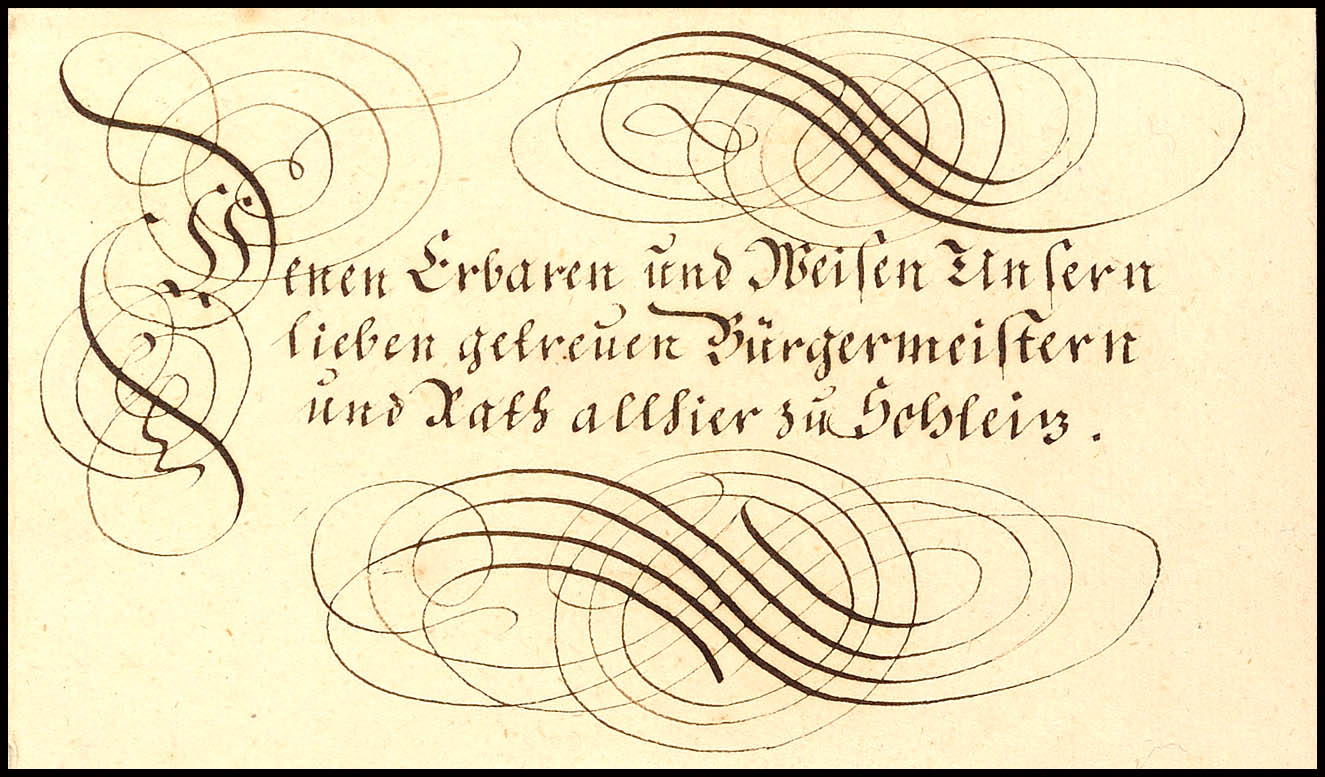 Denen Erbaren und Weisen Unsern
lieben getreuen Bürgermeistern
und Rath allhier zu Schleitz.